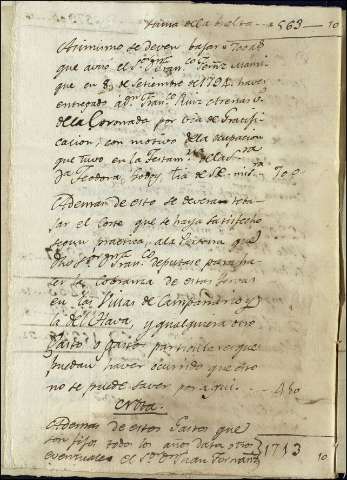 Suma de la buelta - - 563 — 10
Asimismo se deven bajar
que avisó el Sor Dn Franco Fernz
que en 8 de Setiembre de 1794 haver
entregado a Dn Franco Ruiz
de la Coronada por via de Gratifi-
cacion, con motivo de la ocupacion
que tuvo en la Testamria de la Sra
Da Teodora Godoy tia de S.E. 700
Ademas de esto se deveran
sar el Coste que se haya satisfecho
segun practica, a la Persona que
dho Sor Dn Franco deputase para ha-
cer la Cobranza de estas
en las Villas de Campanario y
la del Hava, y qualquiera otro
Gasto o gastos particulares que
puedan haver ocurrido que
no se puede saver por aqui. - - 450
Nota.
Ademas de estos Gastos que
son fijos todos los años data otros
eventuales el Sr Dn Juan 1713 10